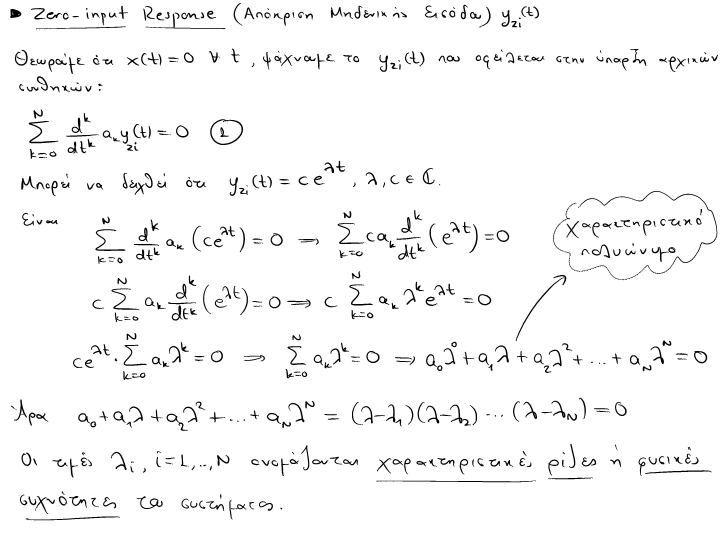 ▶ Zero-input Response (Απόκριση Μηδενικής Εισόδου) y_zi(t)
Θεωρούμε ότι x(t)=0 ∀ t, ψάχνουμε το y_zi(t) που οφείλεται στην ύπαρξη αρχικών
συνθηκών:
∑_{k=0}^{N} d^k/dt^k a_k y_zi(t) = 0 ②
Μπορεί να δειχθεί ότι y_zi(t) = ce^{λt}, λ, c ∈ ℂ.
Είναι ∑_{k=0}^{N} d^k/dt^k a_k (ce^{λt}) = 0 ⇒ ∑_{k=0}^{N} c a_k d^k/dt^k (e^{λt}) = 0
χαρακτηριστικό
πολυώνυμο
c ∑_{k=0}^{N} a_k d^k/dt^k (e^{λt}) = 0 ⇒ c ∑_{k=0}^{N} a_k λ^k e^{λt} = 0
ce^{λt} · ∑_{k=0}^{N} a_k λ^k = 0 ⇒ ∑_{k=0}^{N} a_k λ^k = 0 ⇒ a_0 λ^0 + a_1 λ + a_2 λ^2 + ... + a_N λ^N = 0
Άρα a_0 + a_1 λ + a_2 λ^2 + ... + a_N λ^N = (λ-λ_1)(λ-λ_2) ... (λ-λ_N) = 0
Οι τιμές λ_i, i=1,..,N ονομάζονται χαρακτηριστικές ρίζες ή φυσικές
συχνότητες του συστήματος.